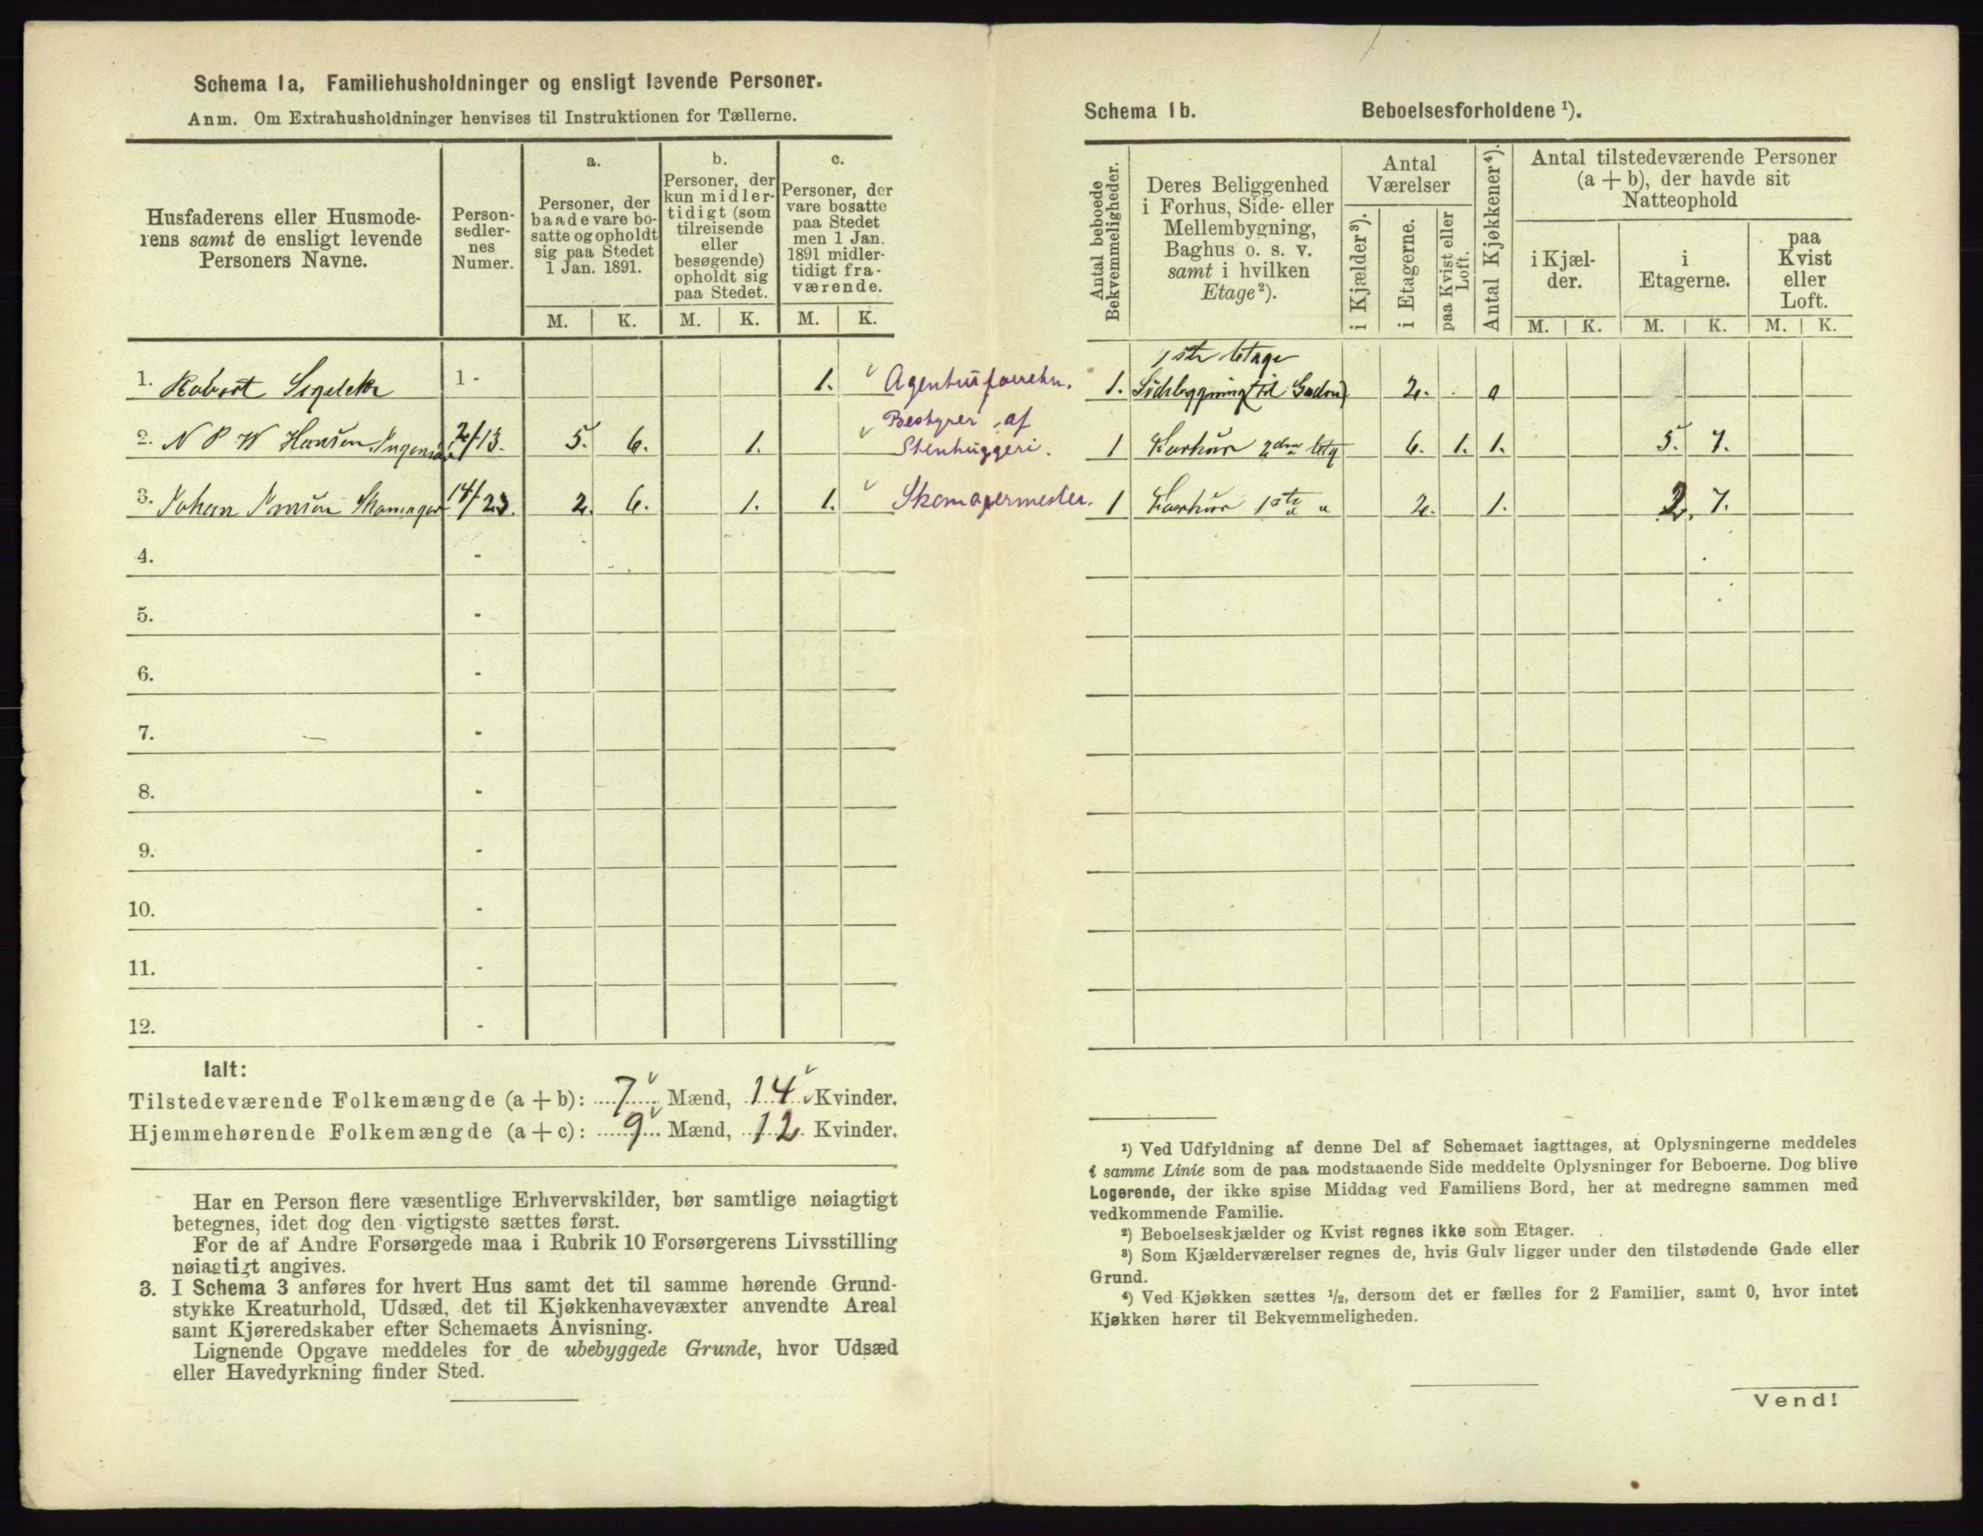 Schema 1a, Familiehusholdninger og ensligt levende Personer.
Anm. Om Extrahusholdninger henvises til Instruktionen for Tællerne.
Husfaderens eller Husmode-
rens samt de ensligt levende
Personers Navne.
Person-
sedler-
nes
Numer.
a.
Personer, der
baade vare bo-
satte og opholdt
sig paa Stedet
1 Jan. 1891.
b.
Personer, der
kun midler-
tidigt (som
tilreisende
eller
besøgende)
opholdt sig
paa Stedet.
c.
Personer, der
vare bosatte
paa Stedet
men 1 Jan.
1891 midler-
tidigt fra-
værende.
M. K. M. K. M. K.
1. Robert 1 - 1. Agenturforretn.
2. N P W Hansen Ingeniør 2/13. 5. 6. 1. Bestyrer af
Stenhuggeri.
3. Johan Skomager 14/23. 2. 6. 1. 1. Skomagermester.
4. -
5. -
6. -
7. -
8. -
9. -
10. -
11. -
12. -
Ialt:
Tilstedeværende Folkemængde (a + b): 7 Mænd, 14 Kvinder.
Hjemmehørende Folkemængde (a + c): 9 Mænd, 12 Kvinder.
Har en Person flere væsentlige Erhvervskilder, bør samtlige nøiagtigt
betegnes, idet dog den vigtigste sættes først.
For de af Andre Forsørgede maa i Rubrik 10 Forsørgerens Livsstilling
nøiagtigt angives.
3. I Schema 3 anføres for hvert Hus samt det til samme hørende Grund-
stykke Kreaturhold, Udsæd, det til Kjøkkenhavevæxter anvendte Areal
samt Kjøreredskaber efter Schemaets Anvisning.
Lignende Opgave meddeles for de ubebyggede Grunde, hvor Udsæd
eller Havedyrkning finder Sted.
Schema 1b. Beboelsesforholdene ¹).
Antal beboede
Bekvemmeligheder.
Deres Beliggenhed
i Forhus, Side- eller
Mellembygning,
Baghus o. s. v.
samt i hvilken
Etage ²).
Antal
Værelser
i Kjælder ³).
i Etagerne.
paa Kvist eller
Loft.
Antal Kjøkkener ⁴).
Antal tilstedeværende Personer
(a + b), der havde sit
Natteophold
i Kjæl-
der.
i
Etagerne.
paa
Kvist
eller
Loft.
M. K. M. K. M. K.
1ste Etage
1. Sidebygning (til Gaden) 2. 0
1 Forhus 2den Etg 6. 1. 1. 5. 7.
1 Forhus 1ste " 2. 1. 2. 7.
¹) Ved Udfyldning af denne Del af Schemaet iagttages, at Oplysningerne meddeles
i samme Linie som de paa modstaaende Side meddelte Oplysninger for Beboerne. Dog blive
Logerende, der ikke spise Middag ved Familiens Bord, her at medregne sammen med
vedkommende Familie.
²) Beboelseskjælder og Kvist regnes ikke som Etager.
³) Som Kjælderværelser regnes de, hvis Gulv ligger under den tilstødende Gade eller
Grund.
⁴) Ved Kjøkken sættes ½, dersom det er fælles for 2 Familier, samt 0, hvor intet
Kjøkken hører til Bekvemmeligheden.
Vend!